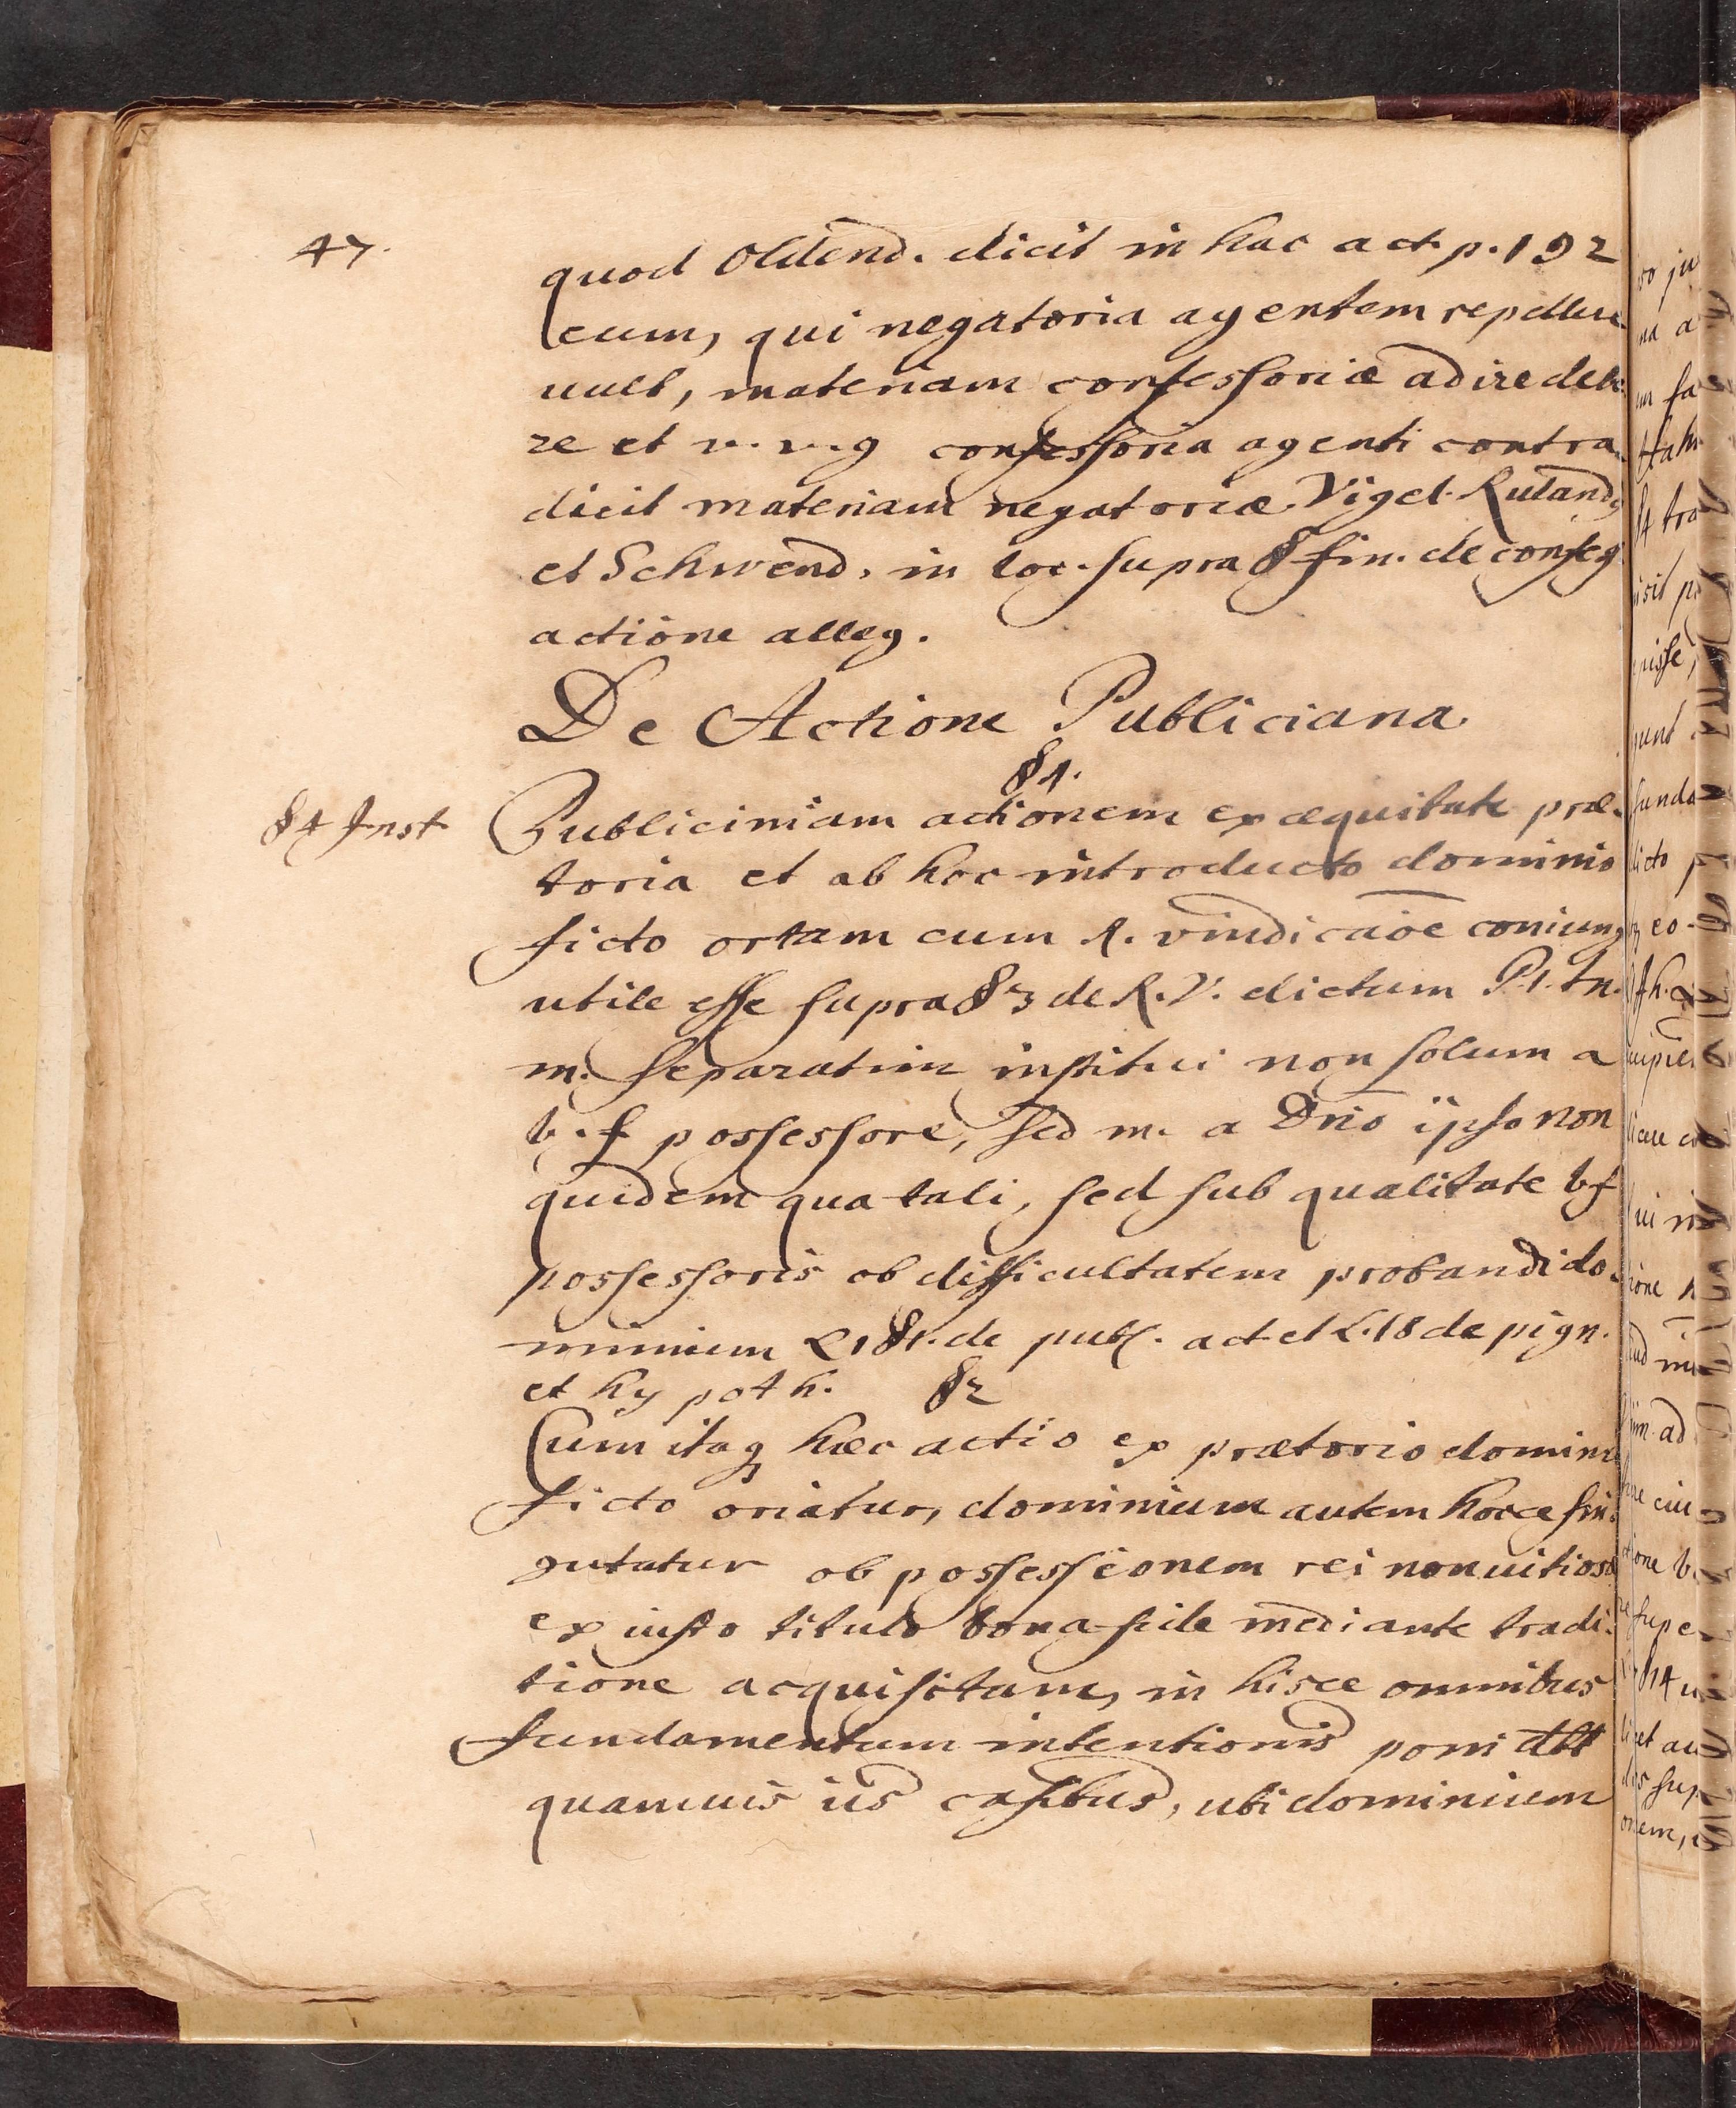 47.
quod Oldend. dicit in hac act. p. 192
eum, qui negatoria agentem repellere
uult, materiam confessoriæ adire debe
re et v. v. q confessoria agenti contra
dicit materiam negatoriæ Vigel. Ruland
et Schwend. in loc. supra § fin. de confess
actione alleg.
De Actione Publiciana
§ 1.
§ 4 Inst
Publiciniam actionem ex æquitate præ-
toria et ab hoc introducto dominio
ficto ortam cum R. vindicaōe coniung
utile esse supra § 3 de R. V. dictum
m. separatim institui non solum a
b. f possessore, sed m. a Dnō ipso non
quidem qua tali, sed sub qualitate bf
possessoris ob difficultatem probandi do-
minium L 1 § 1. de publ. act et L. 18 de pign.
et hypoth.
§ 2
Cum itaq hæc actio ex prætorio domini
ficto oriatur, dominium autem hocce fin-
gutatur ob possessionem rei non uitiosæ
ex iusto titulo bona fide mediante tradi-
tione acquisitam, in hisce omnibus
fundamentum intentionis poni dbt
quamuis iis casibus, ubi dominium